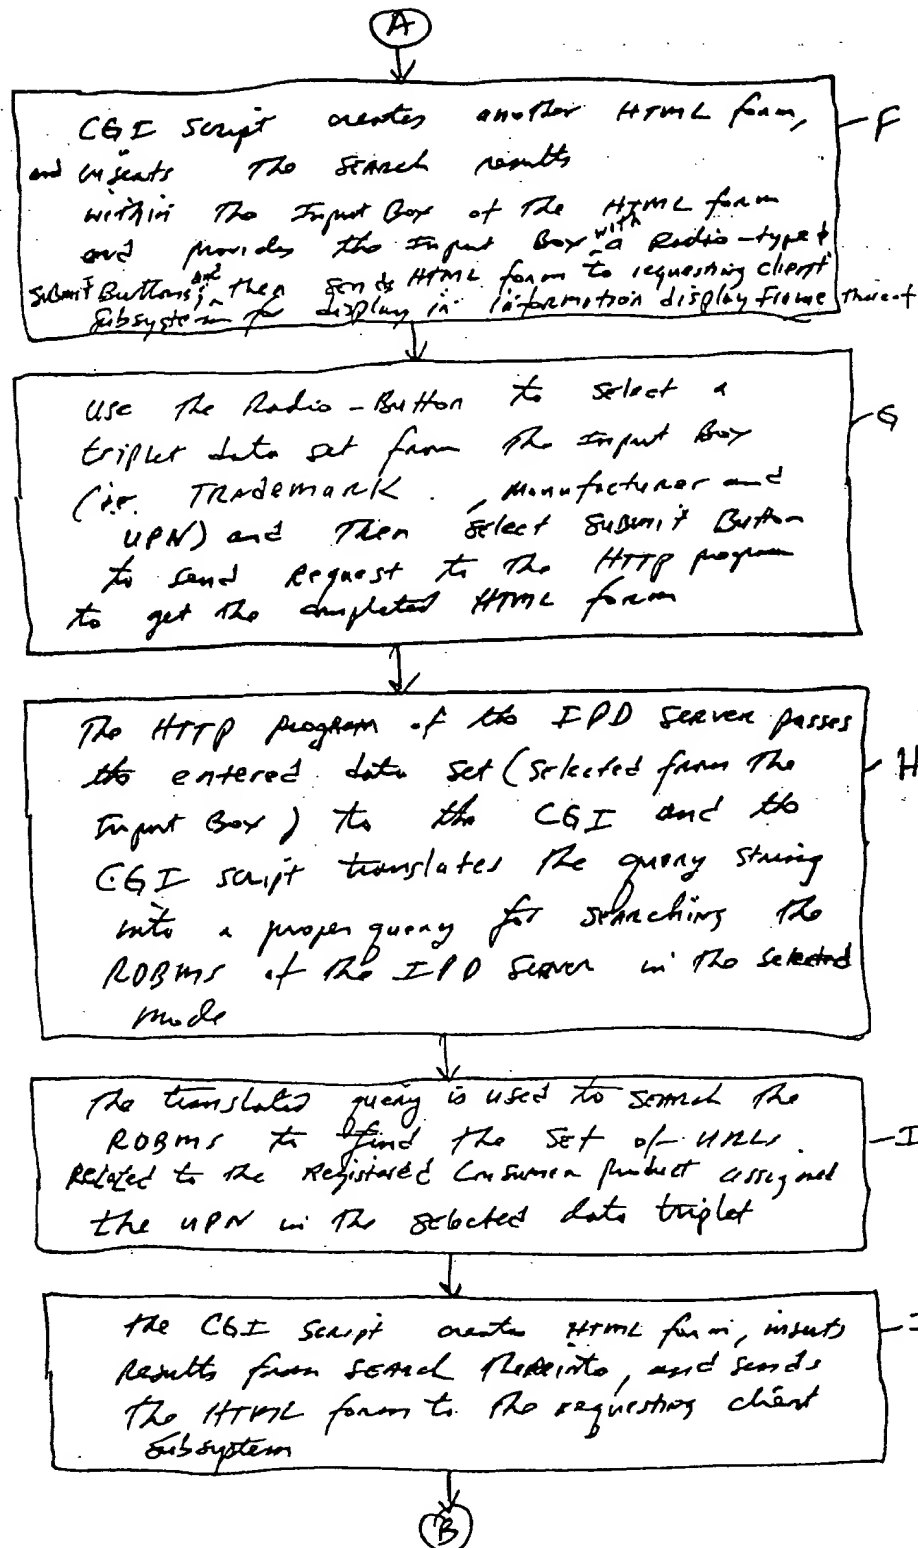 A
CGI Script creates another HTML form,
and inserts the SEARCH results
within the Input Box of the HTML form
and provides the Input Box with a Radio-type &
Submit Buttons, and then sends HTML form to requesting client
Subsystem for display in information display frame thereof
F
Use the Radio-Button to select a
triplet data set from the Input Box
(i.e. TRADEMARK, Manufacturer and
UPN) and Then select Submit Button
to send Request to the HTTP program
to get the completed HTML form
G
The HTTP program of the IPD Server passes
the entered data set (selected from the
Input Box) to the CGI and the
CGI script translates the query string
into a proper query for searching the
RDBMS of the IPD Server in the selected
mode
H
The translated query is used to SEARCH the
RDBMS to find the set of URLs
Related to the Registered Consumer product assigned
the UPN in the selected data triplet
I
the CGI Script creates HTML form, inserts
Results from SEARCH thereinto, and sends
the HTML form to the requesting client
Subsystem
J
B